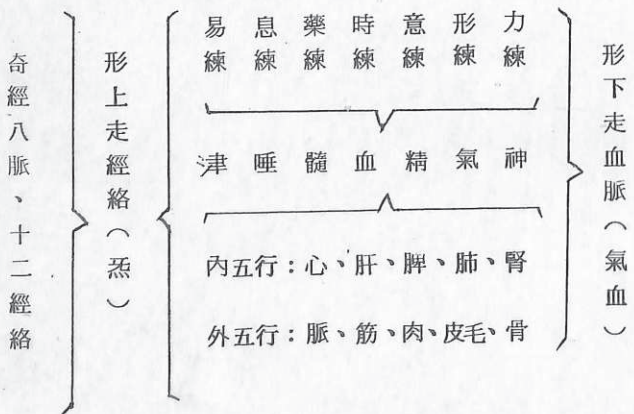 形下走血脈（氣血）
力練
形練
意練
時練
藥練
息練
易練
神 氣 精 血 髓 唾 津
內五行：心、肝、脾、肺、腎
外五行：脈、筋、肉、皮毛、骨
形上走經絡（炁）
奇經八脈、十二經絡